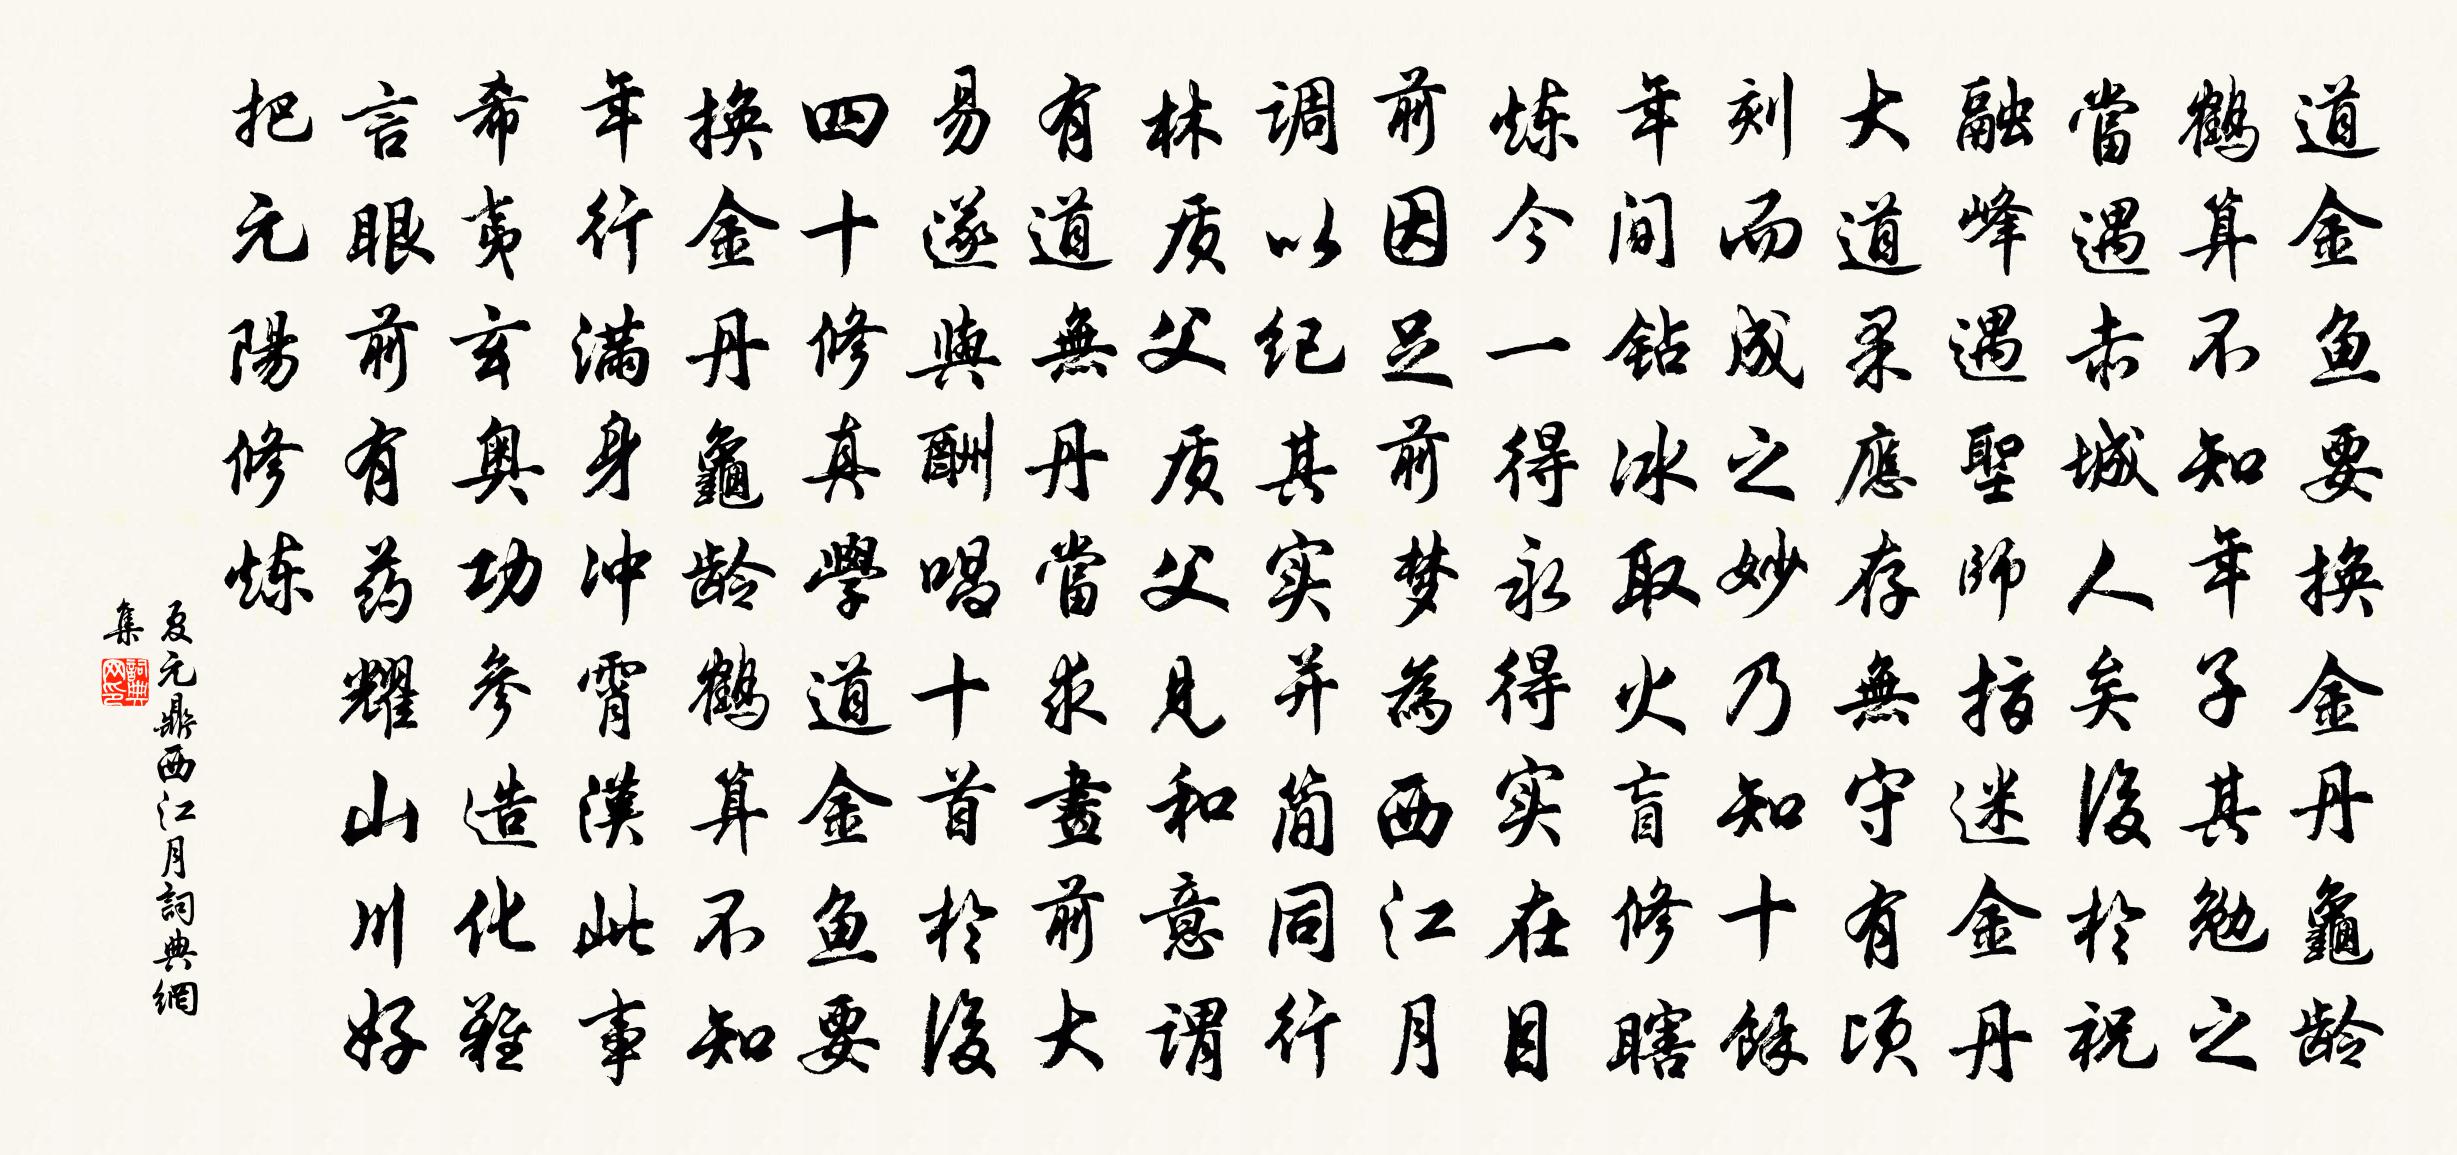 道金鱼要换金丹龜龄
鶴算不知年子其勉之
當遇赤城人矣後於祝
融峰遇聖師指迷金丹
大道果應存無守有頃
刻而成之妙乃知十餘
年间钻冰取火盲修瞎
炼今一得永得实在目
前因足前梦為西江月
调以纪其实并简同行
林质父质父見和意谓
有道無丹當求畫前大
易遂與酬唱十首於後
四十修真學道金鱼要
换金丹龜龄鶴算不知
年行满身冲霄漢此事
希夷玄奥功參造化難
言眼前有药耀山川好
把元陽修炼
夏元鼎西江月詞典網
集
詞典网印